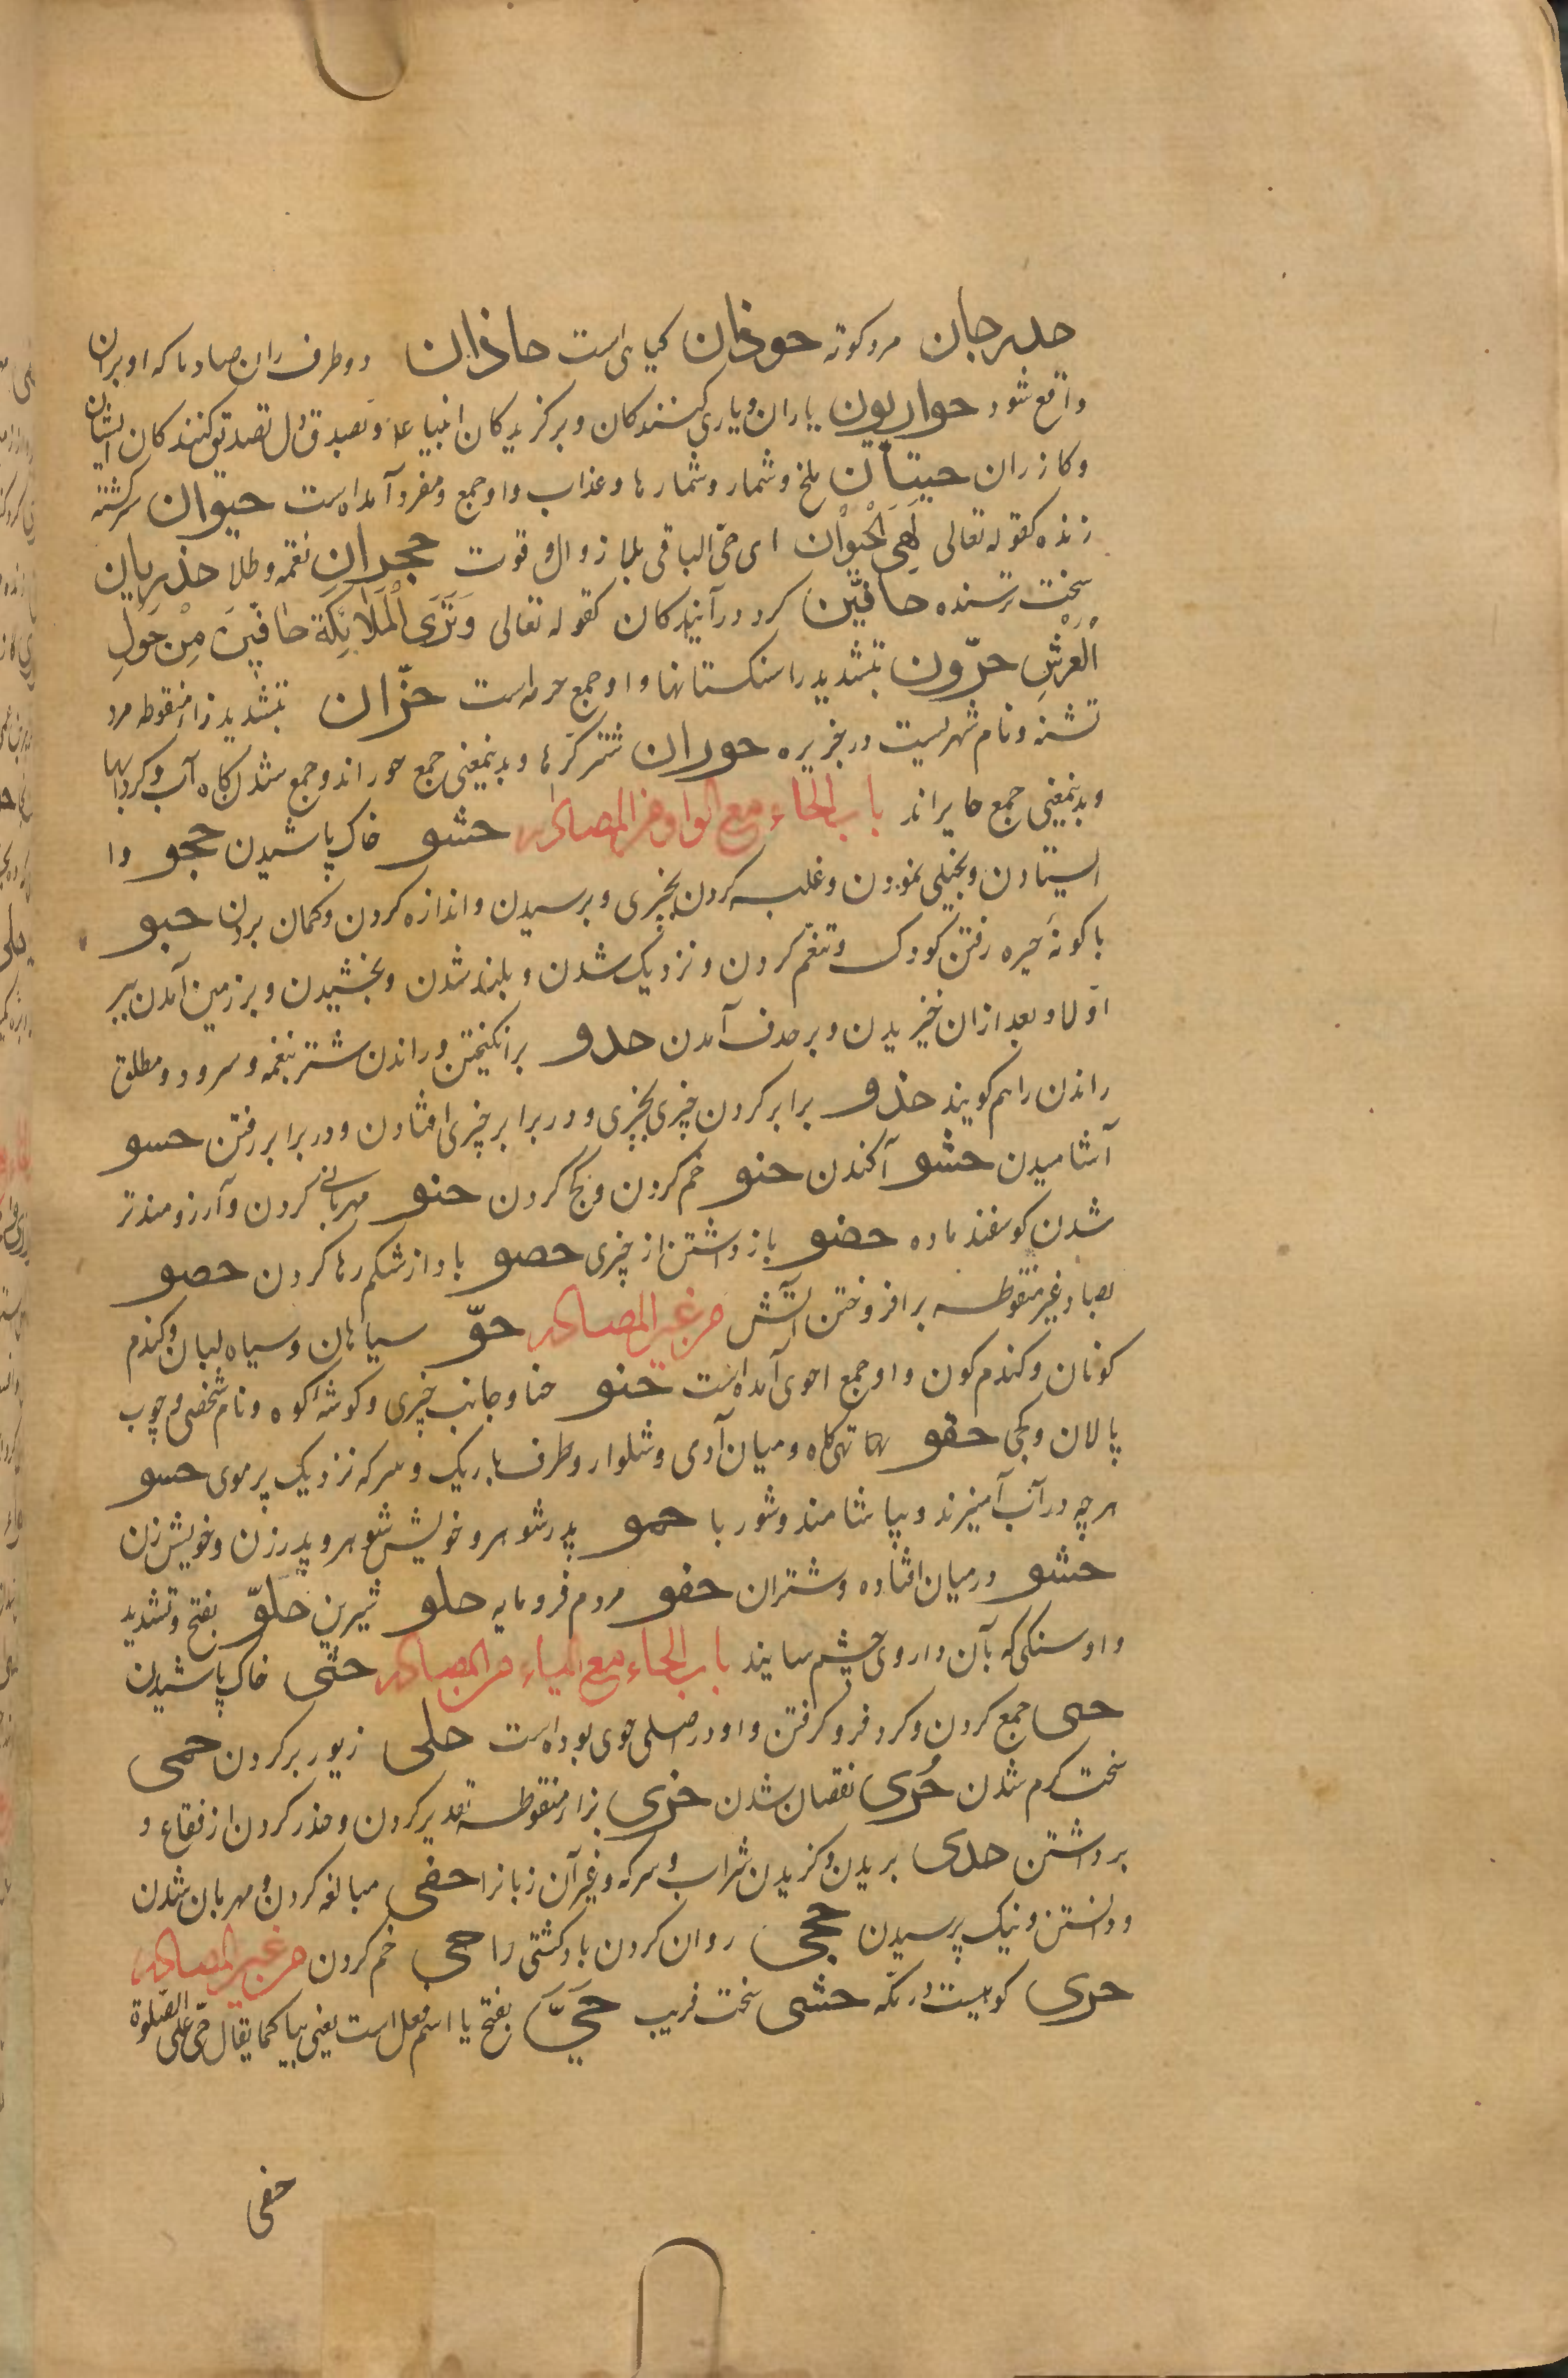 حدرجان مرد کوته حوذان کیاهی است حاذان دو طرف ران صاد ما که او بران
واقع شود حواریون یاران و یاری کنندکان و برکزیدکان انبیا عم و بصدق دل تصدیق کنندکان ایشان
و کازران حسبان ملخ و شمار و شمارها و عذاب و او جمع و مفرد آمده است حیوان سرکشته
زنده کقوله تعالی لَهِیَ الْحَیَوٰان ای حی الباقی بلا زوال و قوت حجران نقره و طلا حذریان
سخت ترسنده حافّین کرد درآیندکان کقوله تعالی وَتَرَی الْمَلاَئِکَة حَافّینَ مِنْ حَوْلِ
الْعَرْشِ حرّون بتشدید را سنکستانها و او جمع حره است حزّان بتشدید زاء منقوطه مرد
تشنه و نام شهریست در جزیره حوران شترکره ها و بدینمعنی جمع حور اند و جمع شدن کاه آب و کردابها
و بدینمعنی جمع حایر اند باب الحاء مع الواو من المصادر حثو خاک پاشیدن حجو وا
ایستادن و بخیلی نمودن و غلبه کردن بچیزی و برسیدن و اندازه کردن و کمان بردن حبو
باکونهٔ خیره رفتن کودک و تنعّم کردن و نزدیک شدن و بلند شدن و بخشیدن و بر زمین آمدن تیر
اوّلا و بعد ازان خیزیدن و بر هدف آمدن حدو برانکیختن و راندن شتر بنغمه و سرود و مطلق
راندن را هم کویند حذو برابر کردن چیزی بچیزی و در برابر چیزی افتادن و در برابر رفتن حسو
آشامیدن حشو آکندن حنو خم کردن و کج کردن حنو مهربانی کردن و آرزومندتر
شدن کوسفند ماده حضو بازداشتن از چیزی حصو باد از شکم رها کردن حصو
بصاد غیر منقوطه برافروختن آتش من غیر المصادر حوّ سیاهان و سیاه لبان و کندم
کونان و کندم کون و او جمع احوی آمده است حنو حنا و جانب چیزی و کوشهٔ کوه و نام شخصی و چوب
پالان و کجی حقو تهی کاه و میان آدمی و شلوار و طرف باریک و سرکه نزدیک پر موی حسو
هر چه در آب آمیزند و بیاشامند و شوربا حمو پدر شوهر و خویش شوهر و پدر زن و خویش زن
حشو در میان افتاده و شتران حفو مردم فرومایه حلو شیرین حلوّ بفتح و تشدید
واو سنکی که بآن داروی چشم سایند باب الحاء مع الیاء من المصادر حثی خاک پاشیدن
حی جمع کردن و کرد فرو کرفتن و او در اصل حوی بوده است حلی زیور بر کردن حمی
سخت کرم شدن حُری نقصان شدن حزی بزاء منقوطه تقدیر کردن و حذر کردن از فقاع و
برداشتن حذی بریدن و کزیدن شراب و سرکه و غیر آن زبانرا حفی مبالغه کردن و مهربان شدن
و دانستن و نیک پرسیدن حجی روان کردن باد کشتی را حنی خم کردن من غیر المصادر
حری کوهیست در مکه حشی سخت فریب حَیَّ بفتح یا اسم فعل است یعنی بیا کما یقال حیّ علی الصّلوة
حفی